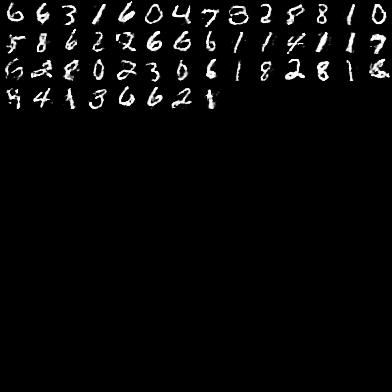 6 6 3 1 6 0 4 7 3 2 8 8 1 0
5 8 6 2 2 6 6 6 1 1 4 1 1 7
6 2 8 0 2 3 0 6 1 8 2 8 1 8
4 1 3 6 6 2 1